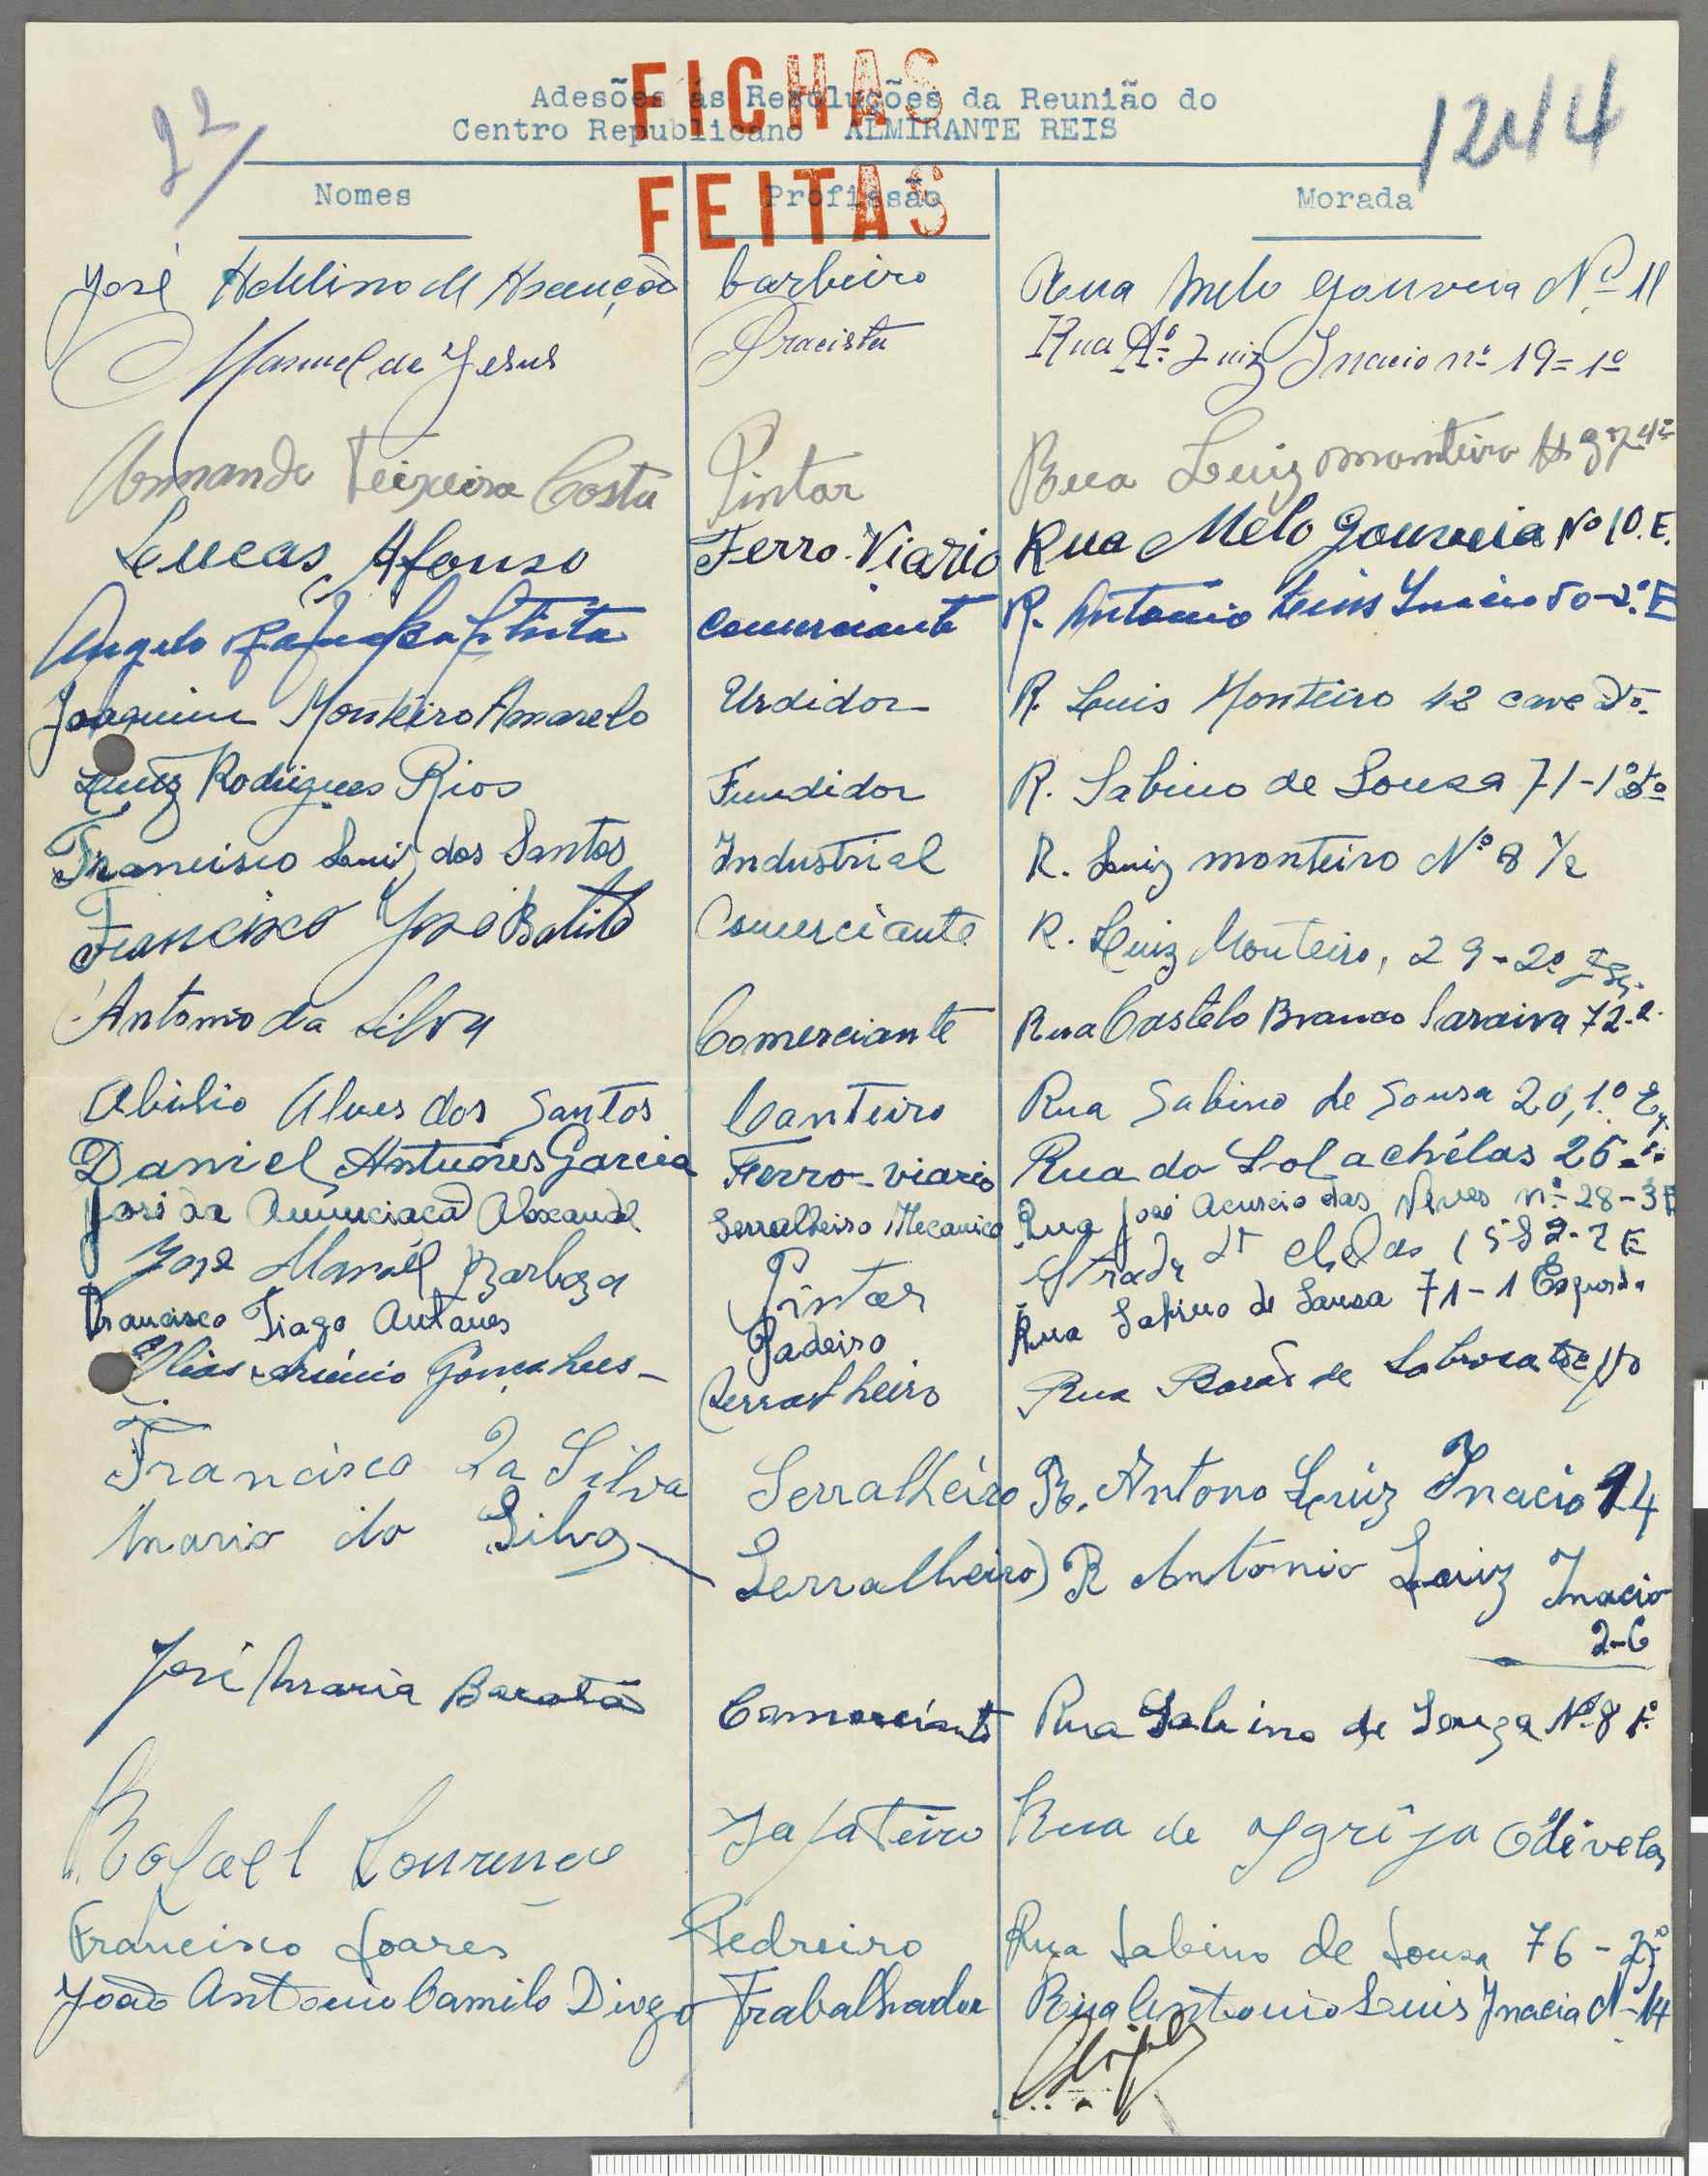 Adesões ás Resoluções da Reunião do
Centro Republicano ALMIRANTE REIS
FICHAS
FEITAS
22
1244
Nomes Profissão Morada
José Adelino M Asenção barbeiro Rua Melo Gouveia Nº 11
Manuel de Jesus Pracista Rua Aº Luiz Inacio nº 19-1º
Armando Teixeira Costa Pintor Rua Luiz Monteiro
Lucas Afonso Ferro-Viario Rua Melo Gouveia Nº 10. E.
Angelo Baptista Comerciante R. Antonio Luis Inacio 50-2º E
Joaquim Monteiro Amarelo Urdidor R. Luis Monteiro 42 cave Dtº
Luiz Rodrigues Rios Fundidor R. Sabino de Sousa 71-1º
Francisco Luiz dos Santos Industrial R. Luiz monteiro Nº 8 1/2
Francisco José Batista Comerciante R. Luiz Monteiro, 29-2º Esq.
Antonio da Silva Comerciante Rua Castelo Branco Saraiva 72-2
Abilio Alves dos Santos Canteiro Rua Sabino de Sousa 20, 1º Eq
Daniel Antunes Garcia Ferro-viario Rua do Sol a chélas 26
José da Anunciacã Aloxandre Serralheiro Mecanico Rua José Acurcio das Neves nº 28-3 E
José Manuel Barboza Pintor Estrada de Chelas 2 E
Francisco Tiago Antunes Padeiro Rua Sabino de Sousa 71-1 Esquerda
Elias Arsénio Gonçalves Serralheiro Rua Barão de Sabrosa
Francisco da Silva Serralheiro R. Antono Luiz Inacio 24
Mario da Silva Serralheiro R Antonio Luiz Inacio
2-6
José Maria Barata Comerciante Rua Sabino de Souza Nº 8 1º
Rafael Lourenco Sapateiro Rua de Igrija Odivelas
Francisco Soares Pedreiro Rua Sabino de Sousa 76 - 2º
João Antonio Camilo Diogo Trabalhador Rua Antonio Luis Inacia Nº 14